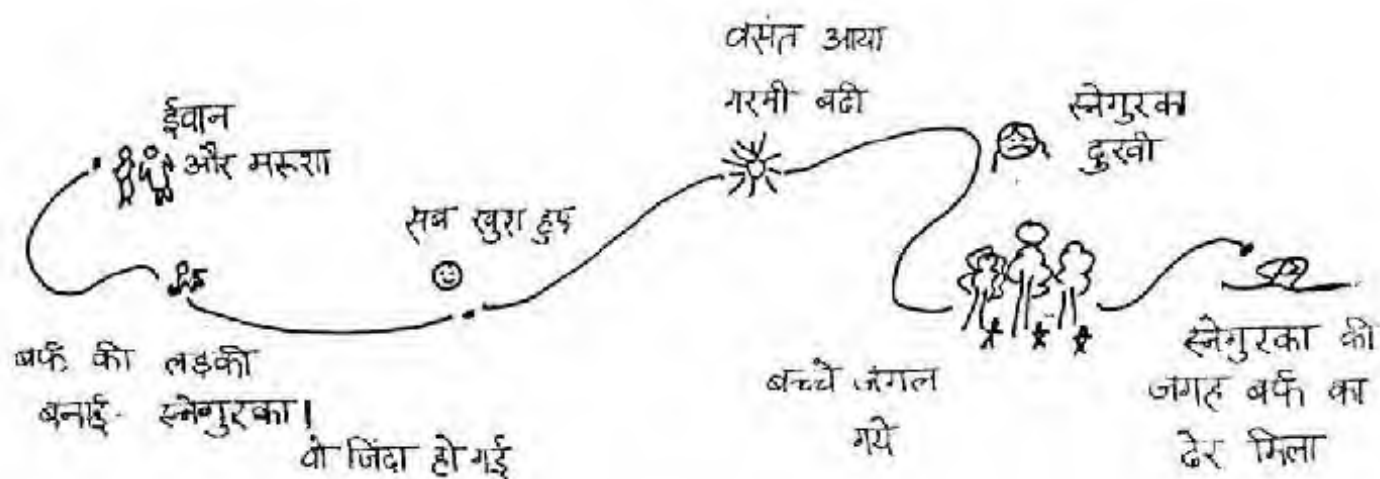 ईवान
और मरूशा
बर्फ की लड़की
बनाई- स्नेगुरका।
वो जिंदा हो गई
सब खुश हुए
वसंत आया
गरमी बढी
स्नेगुरका
दुखी
बच्चे जंगल
गये
स्नेगुरका की
जगह बर्फ का
ढेर मिला